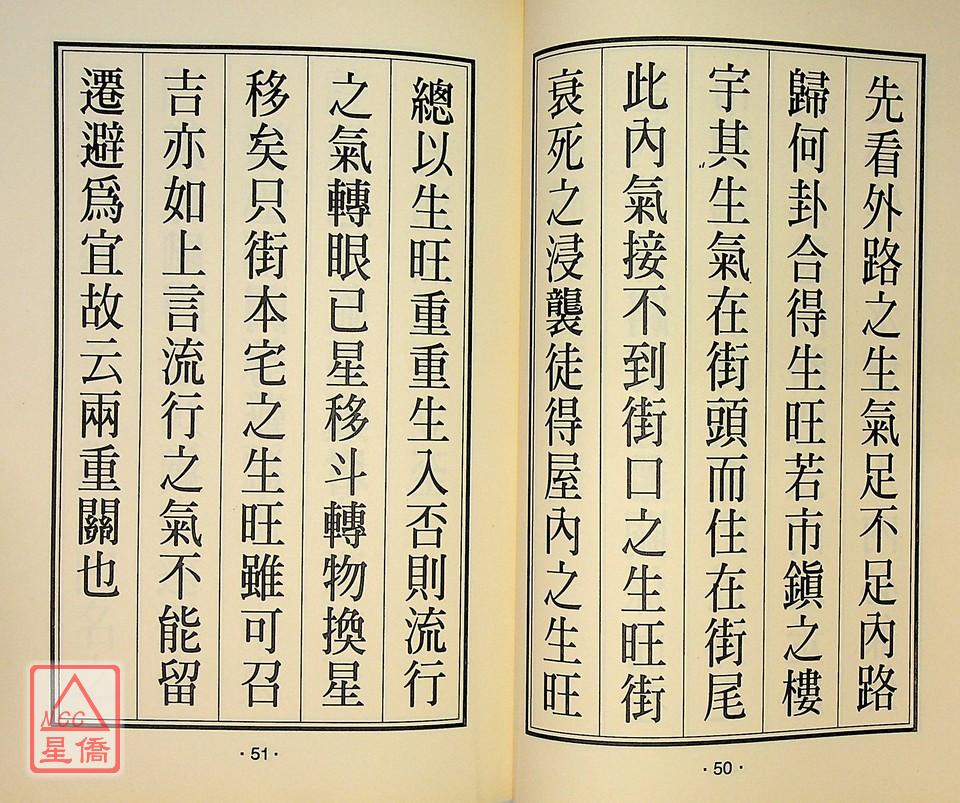 先看外路之生氣足不足內路
歸何卦合得生旺若市鎭之樓
宇其生氣在街頭而住在街尾
此內氣接不到街口之生旺街
衰死之浸襲徒得屋內之生旺
·50·
總以生旺重重生入否則流行
之氣轉眼已星移斗轉物換星
移矣只街本宅之生旺雖可召
吉亦如上言流行之氣不能留
遷避爲宜故云兩重關也
·51·
NCC
星僑